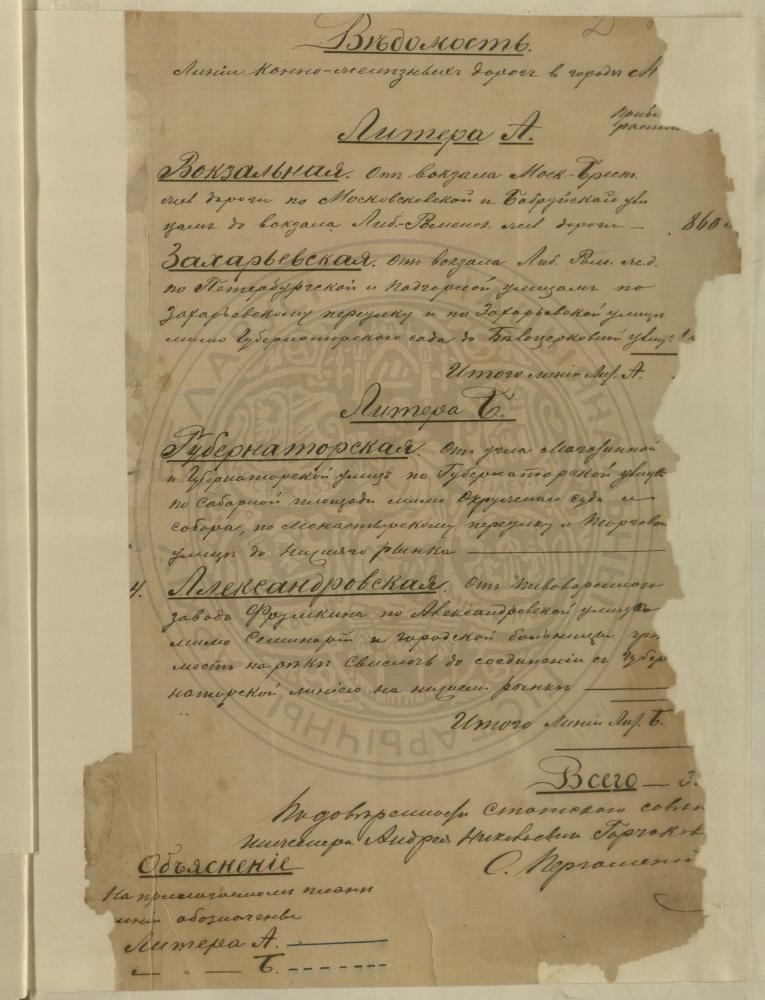 Вѣдомость.
Линіи конно-желѣзныхъ дорогъ въ городѣ М
Литера А.
Вокзальная. Отъ вокзала Моск-Брест.
жел дороги по Московской и Бобруйской ули
цамъ до вокзала Либ-Роменск жел дороги — 860
Захарьевская. Отъ вокзала Либ. Ром. ж.д.
по Петербургской и Подгорной улицамъ по
Захарьевскому переулку и по Захарьевской улицѣ
мимо Губернаторского сада до Бѣлоцерковной улицы
Итого линіи Лит. А.
Литера Б.
Губернаторская. Отъ угла Магазинной
и Губернаторской улицъ по Губернаторской улицѣ
по Соборной площади мимо Окружнаго суда и
собора, по Монастырскому переулку и Торговой
улицѣ до Низшаго рынка —
4. Александровская. Отъ Пивовареннаго
завода Фрумкина по Александровской улицѣ
мимо Семинаріи и городской больницы чрез
мостъ на рѣкѣ Свислочь до соединенія съ Губер
наторской линіею на низшем рынкѣ —
Итого Линіи Лит. Б.
Всего — 3.
По довѣренности Статского совѣт
инженера Андрея Николаевича Горчаков
С. Пергамент
Объясненіе
На прилагаемомъ планѣ
линіи обозначены
Литера А. —
— " — Б. - - - - -